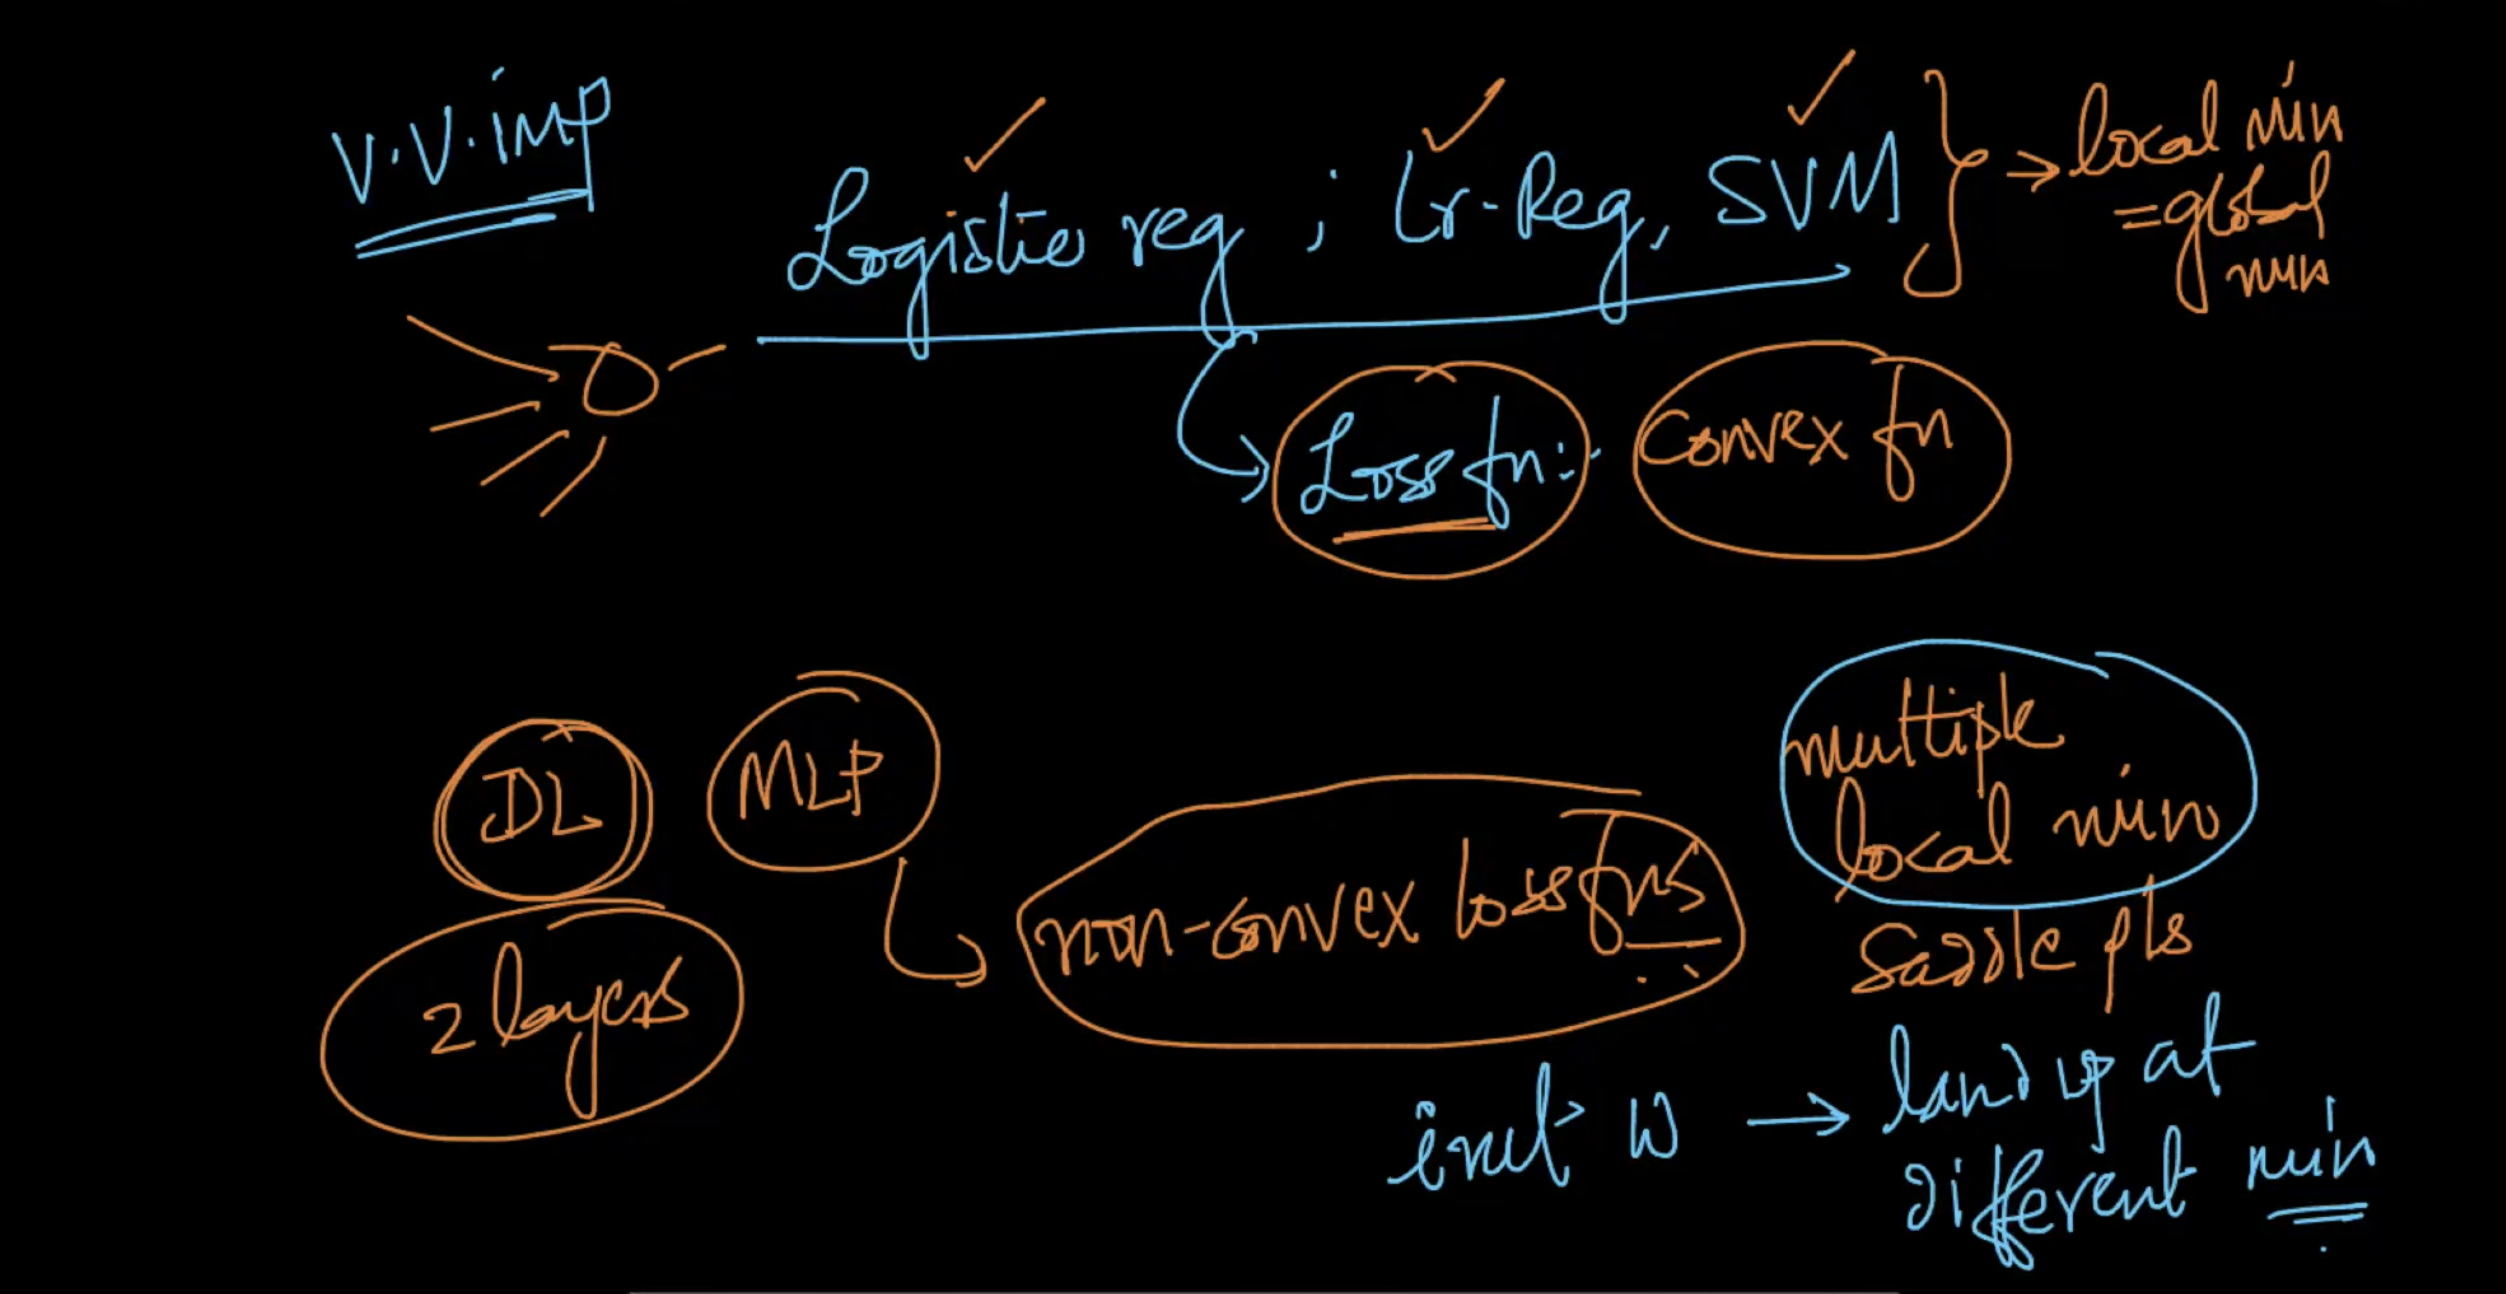 V.V.imp
Logistic reg ; Lr-Reg, SVM
→ local min
= global
min
Loss fn:- convex fn
DL
MLP
2 layers
non-convex loss fns
multiple
local min
saddle pts
init W → land up at
different min